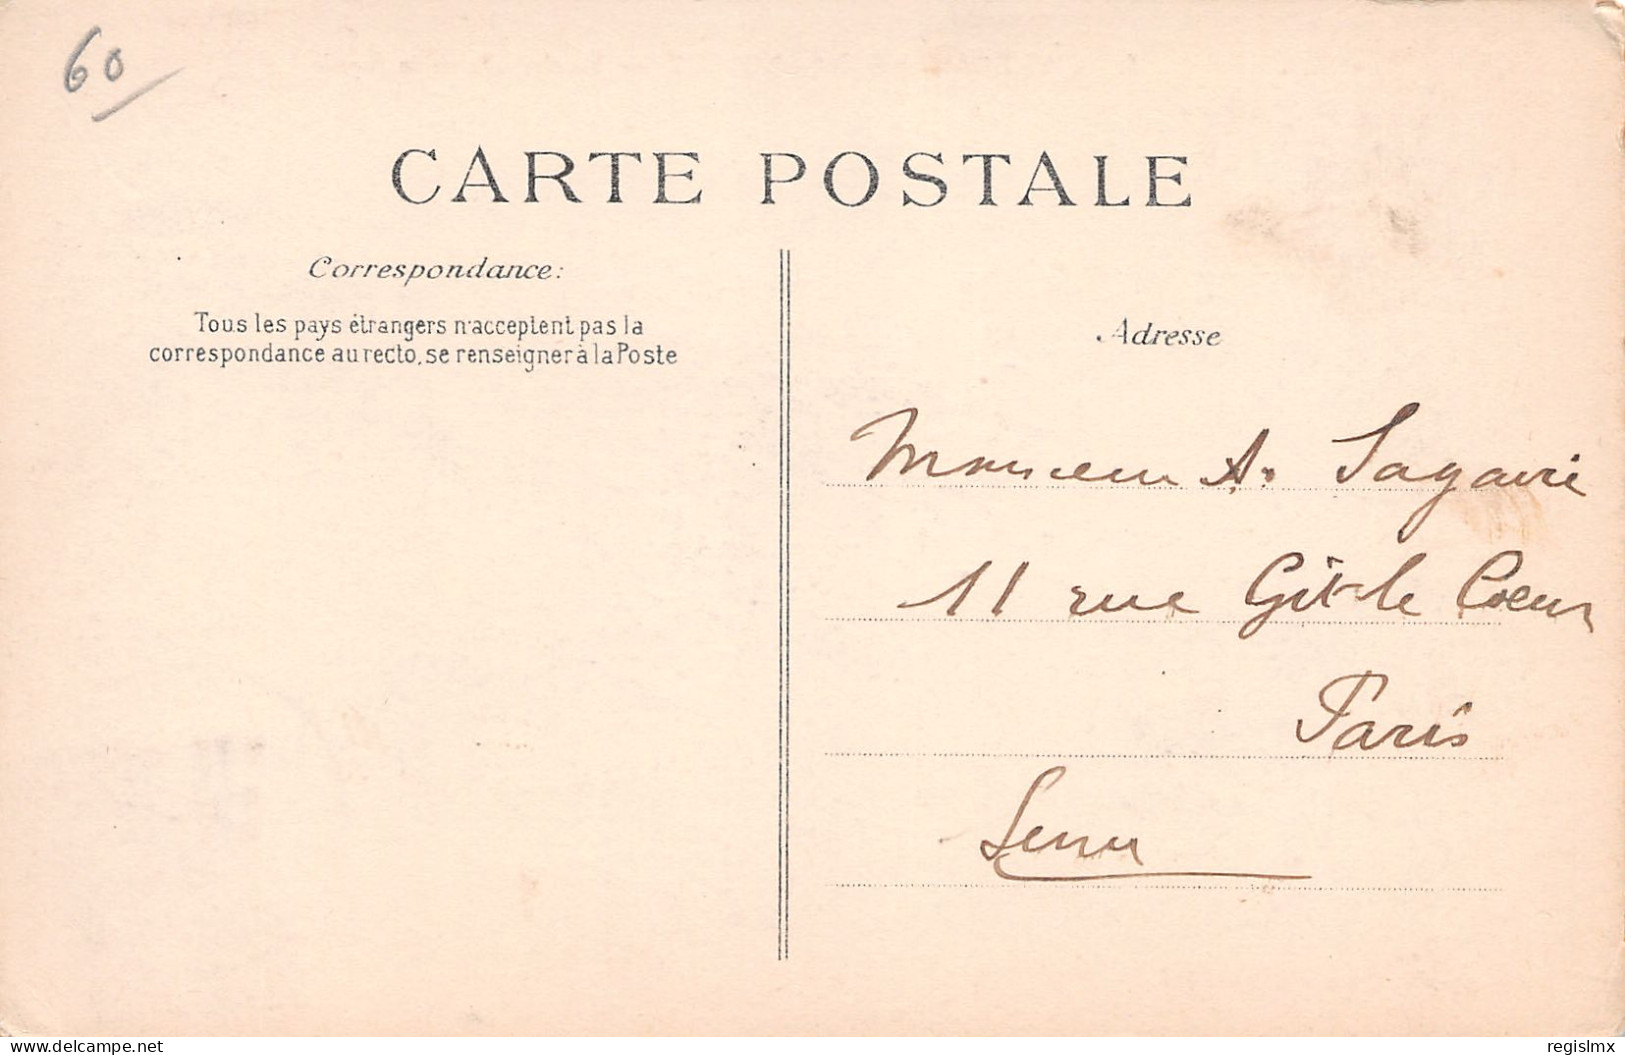 60
CARTE POSTALE
Correspondance:
Tous les pays étrangers n'acceptent pas la
correspondance au recto, se renseigner à la Poste
Adresse
Monsieur A. Sagavie
11 rue Gît-le Coeur
Paris
Seine
delcampe.net
regislmx